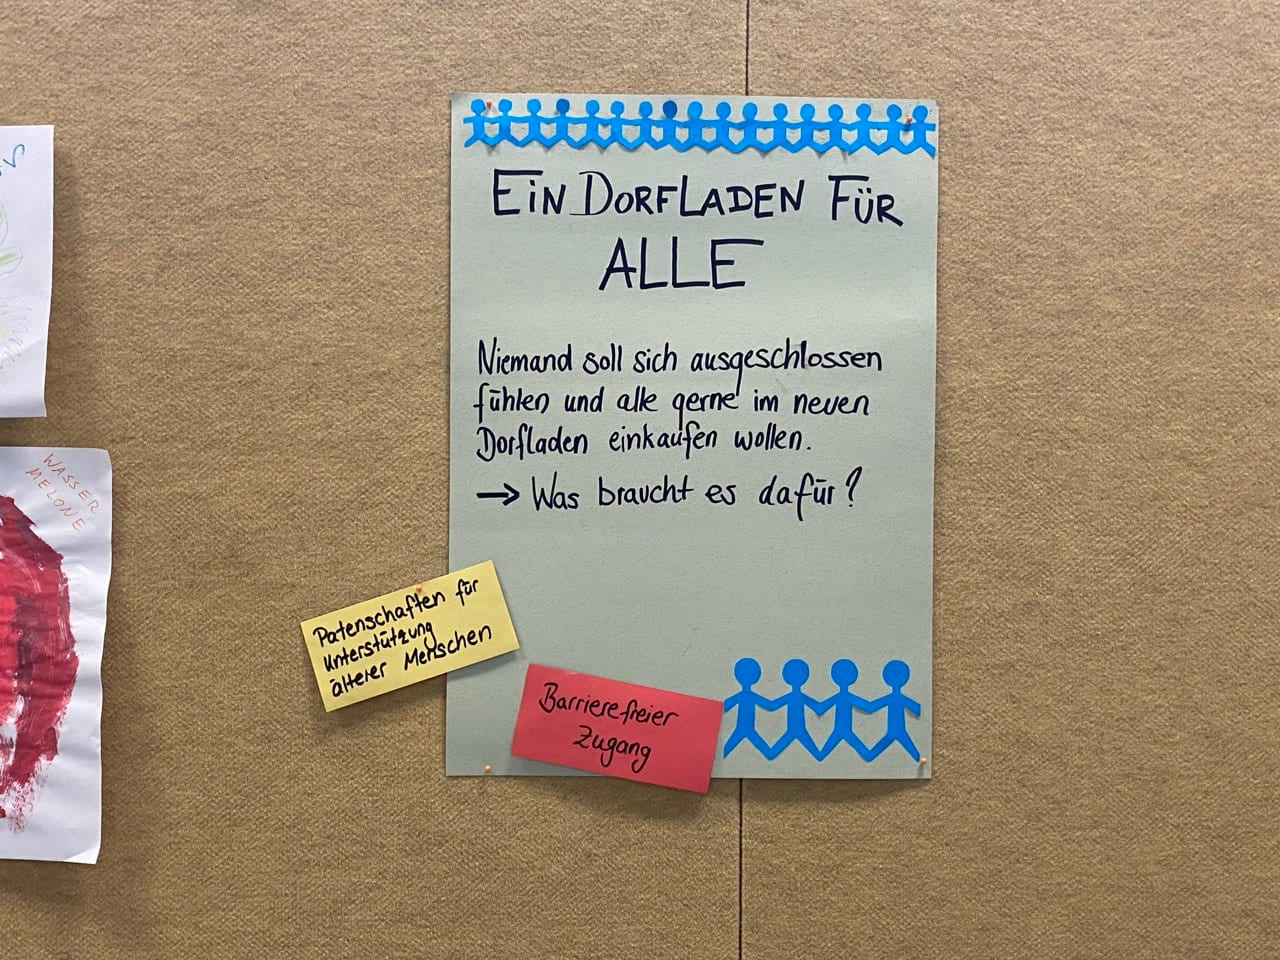 EIN DORFLADEN FÜR
ALLE
Niemand soll sich ausgeschlossen
fühlen und alle gerne im neuen
Dorfladen einkaufen wollen.
→ Was braucht es dafür?
Patenschaften für
Unterstützung
älterer Menschen
Barrierefreier
Zugang
WASSER
MELONE